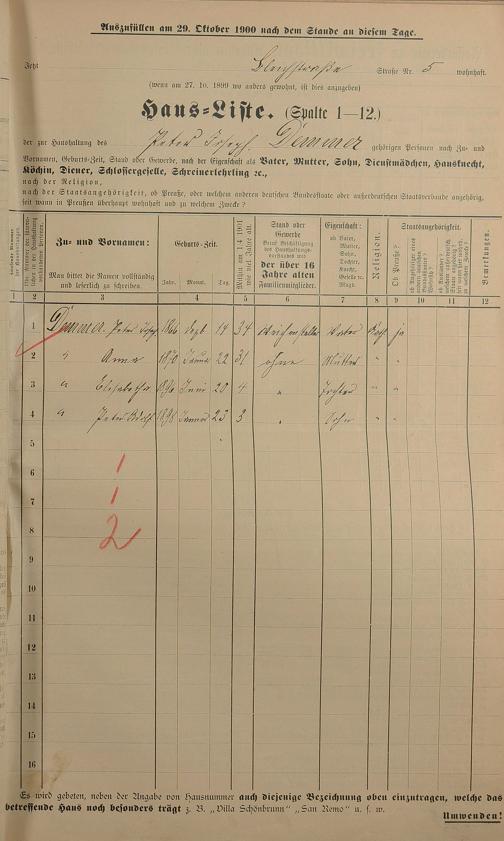 Auszufüllen am 29. Oktober 1900 nach dem Stande an diesem Tage.
Jetzt Bleichstraße Straße Nr. 5 wohnhaft.
(wenn am 27. 10. 1899 wo anders gewohnt, ist dies anzugeben)
Haus-Liste. (Spalte 1—12.)
der zur Haushaltung des Peter Joseph Demmer gehörigen Personen nach Zu- und
Vornamen, Geburts-Zeit, Stand oder Gewerbe, nach der Eigenschaft als Vater, Mutter, Sohn, Dienstmädchen, Hausknecht,
Köchin, Diener, Schlossergeselle, Schreinerlehrling ꝛc.,
nach der Religion,
nach der Staatsangehörigkeit, ob Preuße, oder welchem anderen deutschen Bundesstaate oder außerdeutschen Staatsverbande angehörig,
seit wann in Preußen überhaupt wohnhaft und zu welchem Zwecke?
Zu- und Vornamen:
Man bittet die Namen vollständig
und leserlich zu schreiben.
Geburts-Zeit.
Jahr. Monat. Tag.
Mithin am 1/4 1901
wie viel Jahre alt.
Stand oder
Gewerbe
der über 16
Jahre alten
Familienmitglieder.
Eigenschaft:
ob Vater,
Mutter,
Sohn,
Tochter,
Knecht,
Geselle o.
Magd.
Religion.
Staatsangehörigkeit.
Ob Preuße?
Bemerkungen.
1 2 3 4 5 6 7 8 9 10 11 12
1 Demmer Peter Joseph 1866 Sept 14 34 Weichensteller Vater kath ja
2 " Anna 1870 Januar 22 31 ohne Mutter " "
3 " Elisabetha 1896 Juni 20 4 " Tochter " "
4 " Peter Adolf 1898 Januar 23 3 " Sohn " "
5
6
1
7
1
8
2
9
10
11
12
13
14
15
16
Es wird gebeten, neben der Angabe von Hausnummer auch diejenige Bezeichnung oben einzutragen, welche das
betreffende Haus noch besonders trägt z. B. „Villa Schönbrunn" „San Remo" u. s. w.
Umwenden!